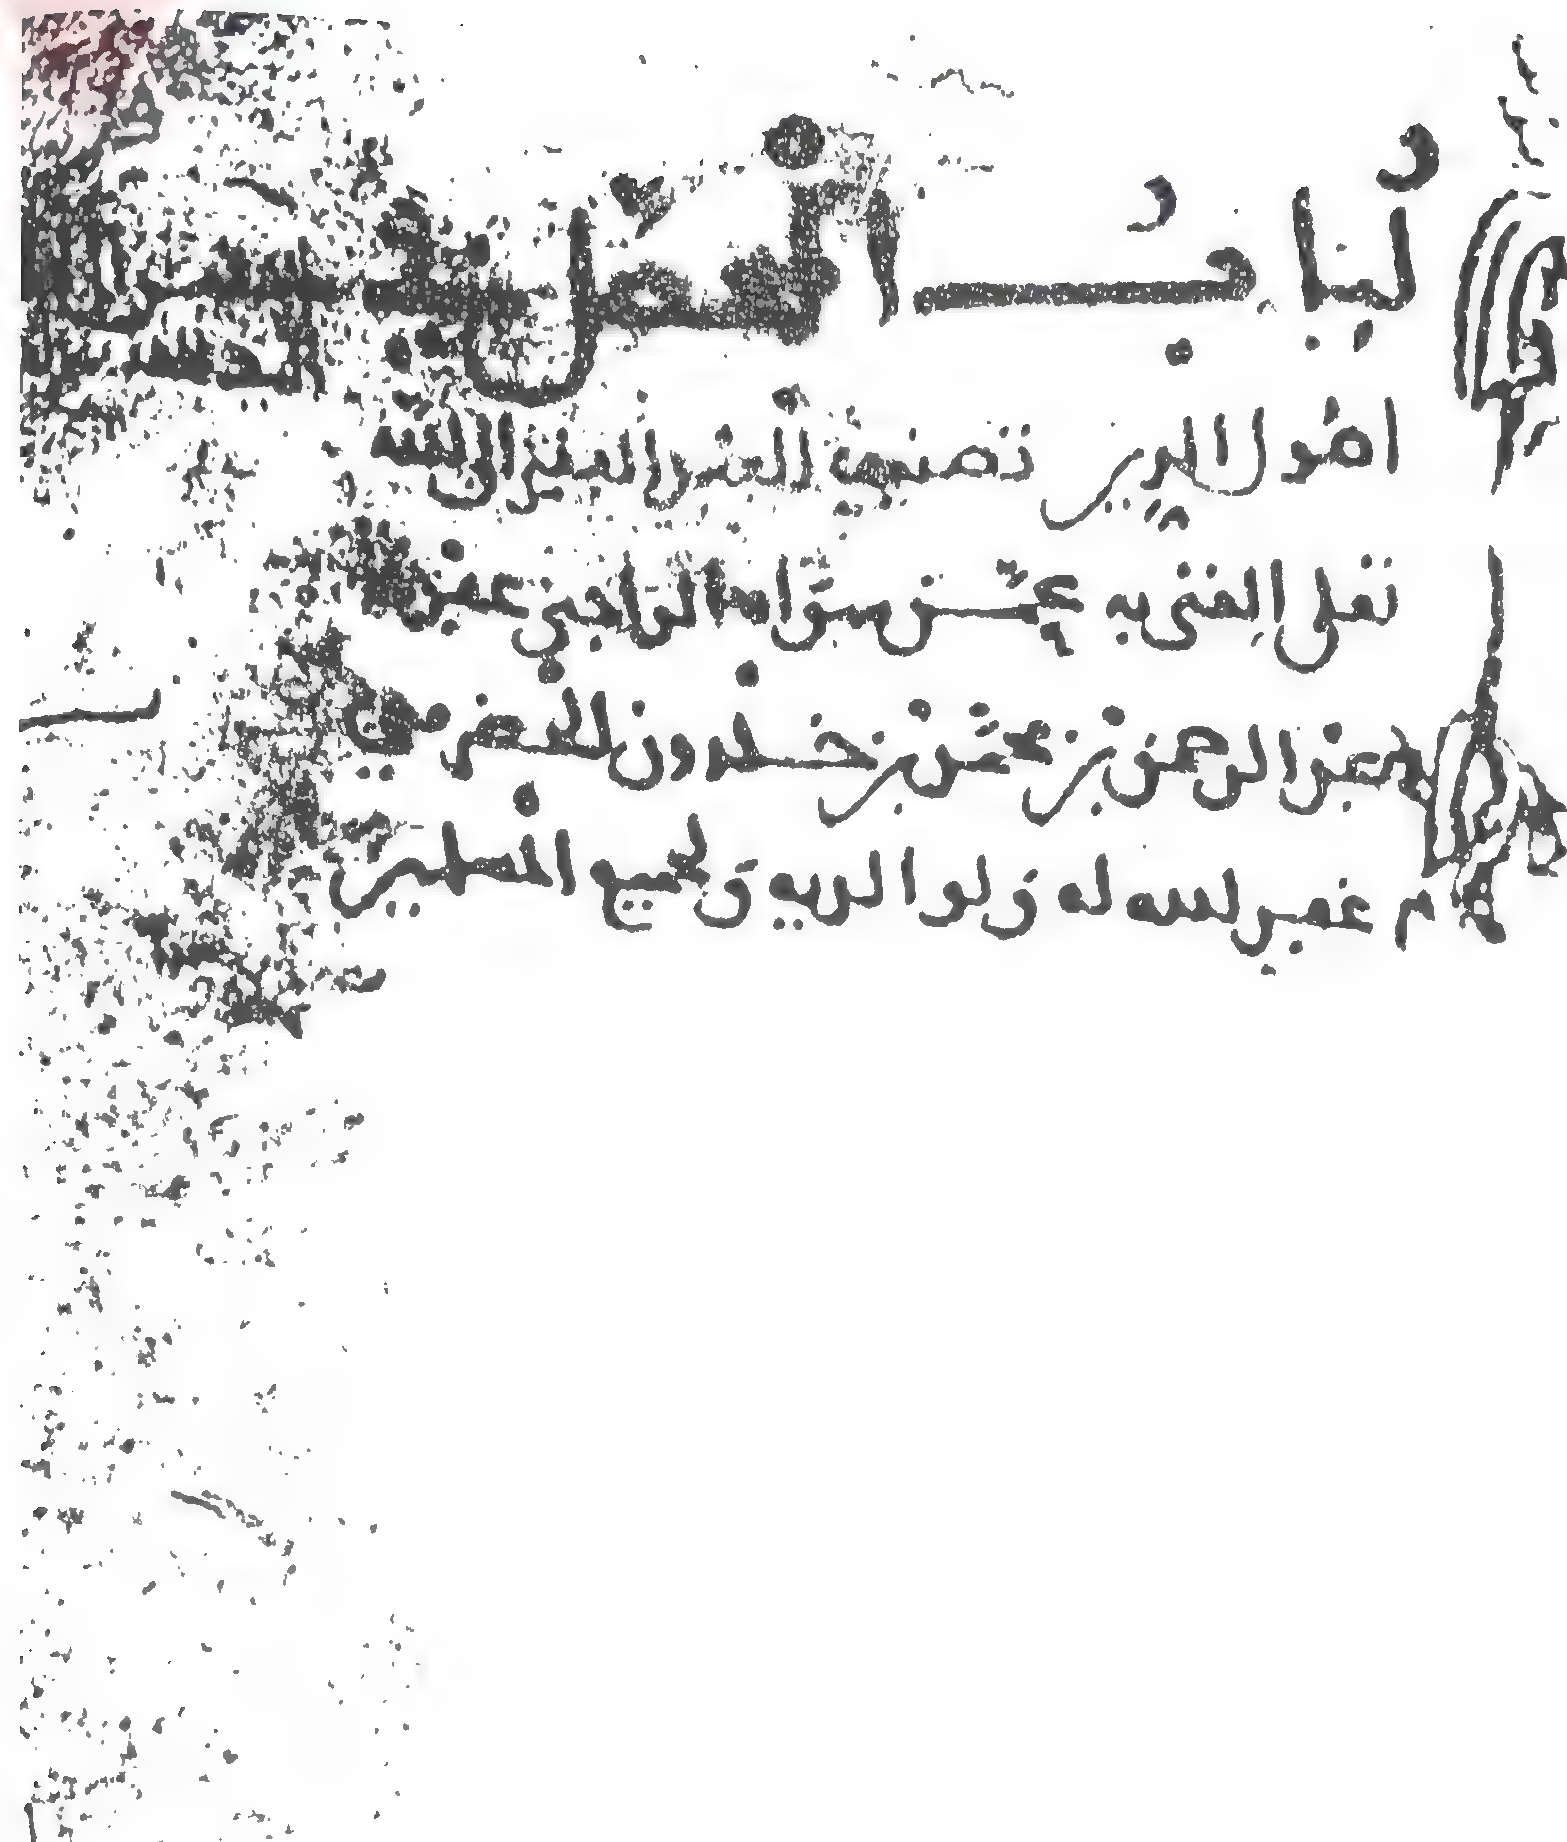 لباب المحصل في
اصول الدين تصنيف العبد الفقير الى الله
تعلى الغني به عمن سواه الراجي عفوه
عبد الرحمن بن محمد بن خلدون الحضرمي
غفر الله له ولوالديه ولجميع المسلمين